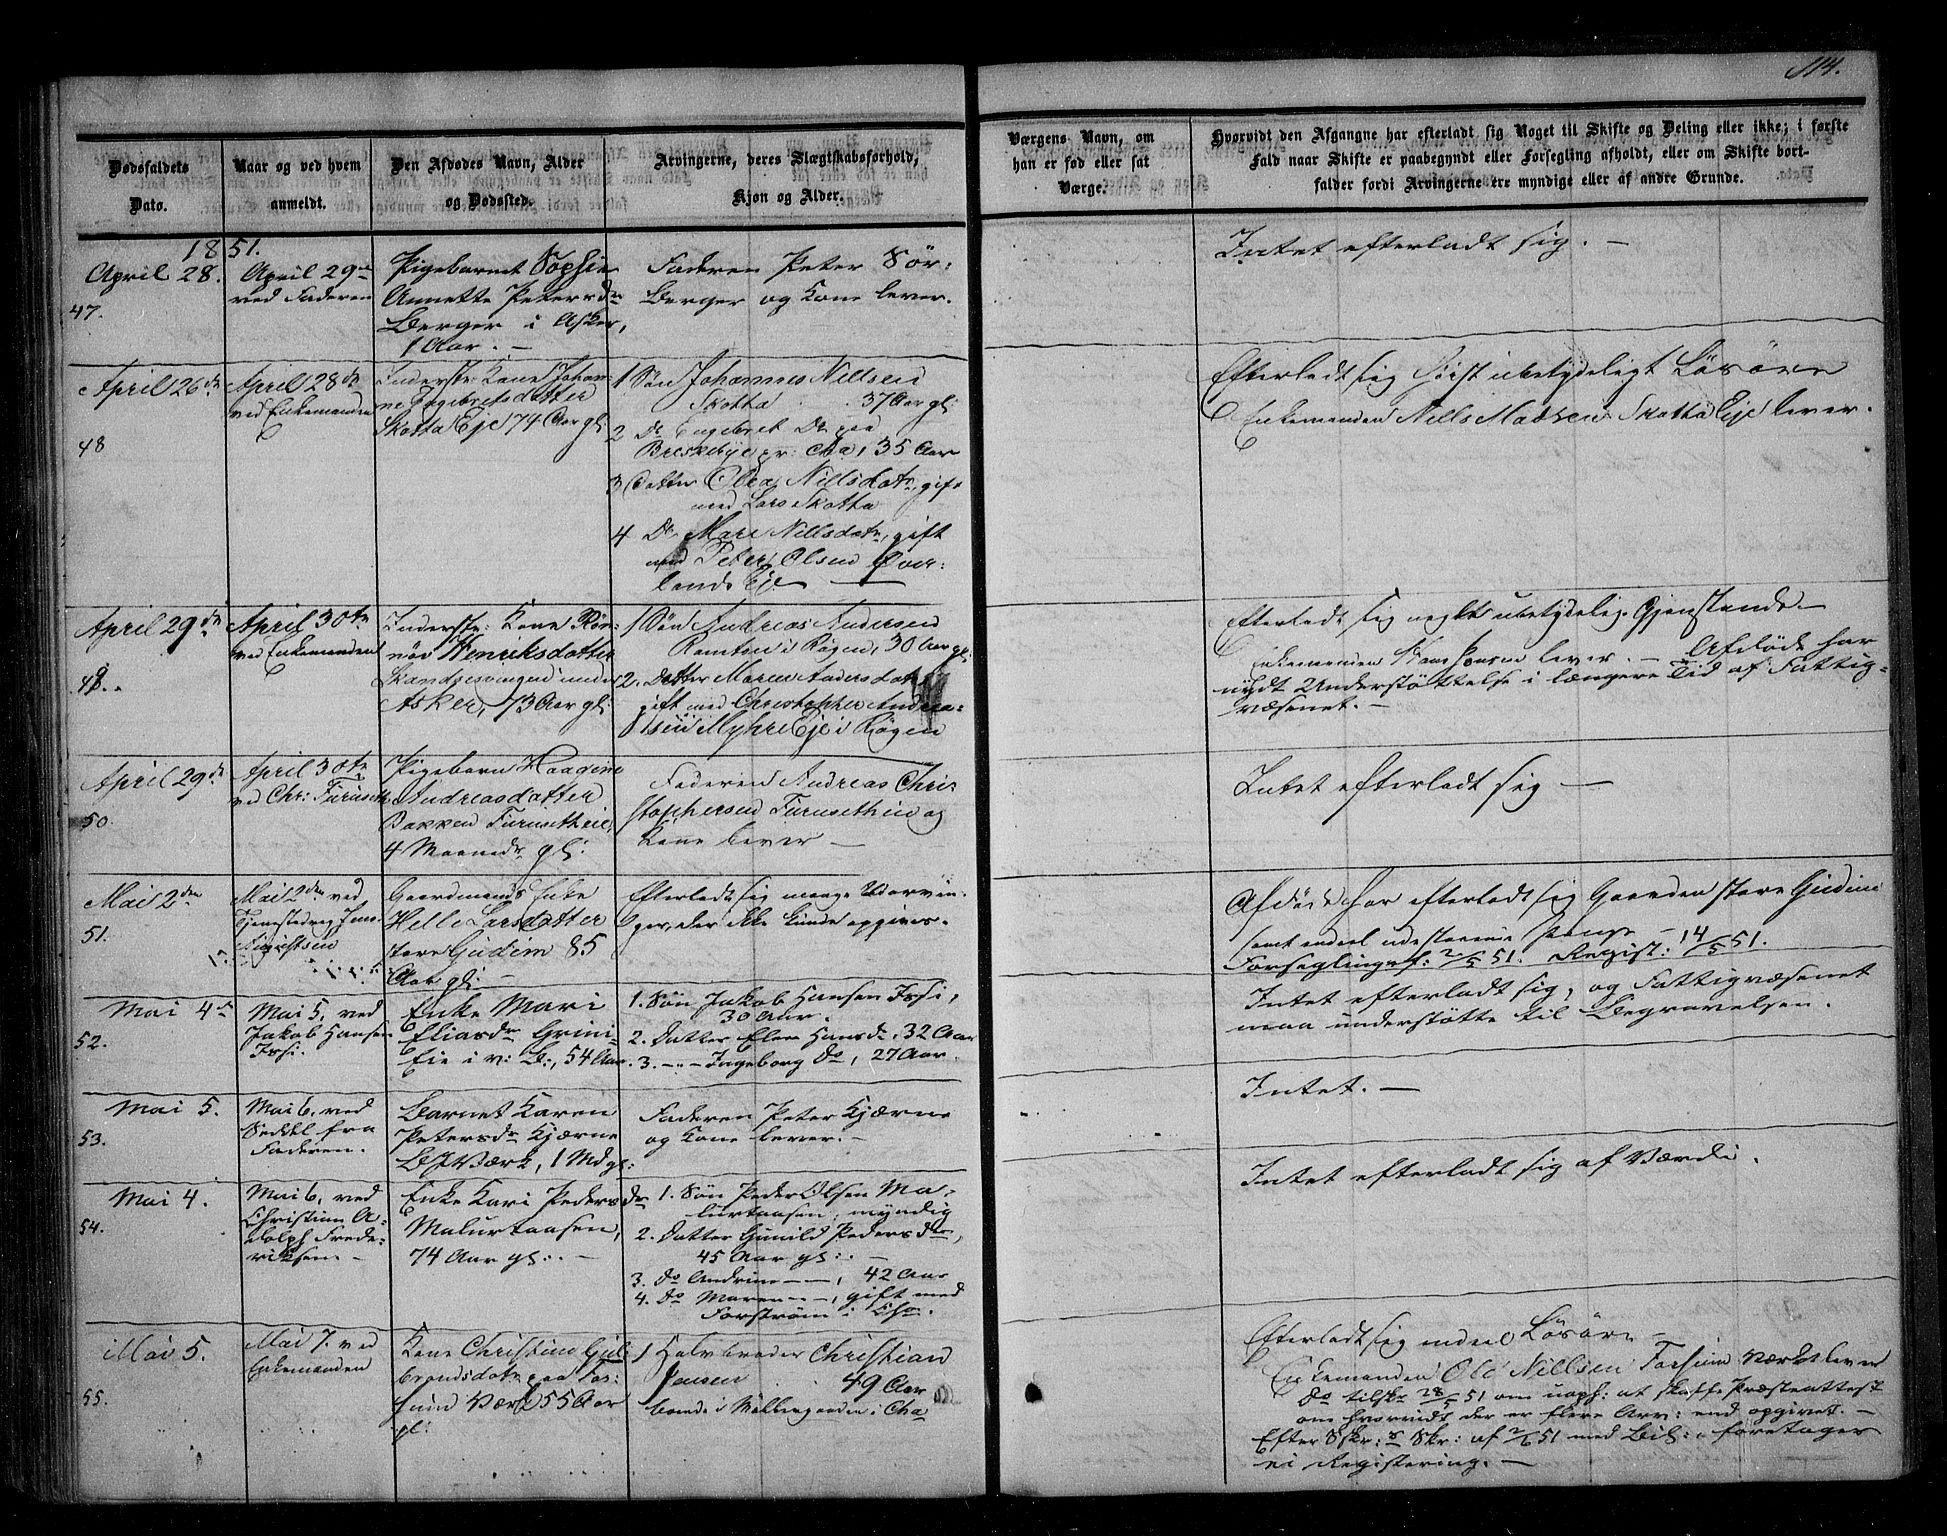 114.
Dødsfaldets
Dato.
Naar og ved hvem
anmeldt.
Den Afdødes Navn, Alder
og Dødssted.
Arvingerne, deres Slægtskabsforhold,
Kjøn og Alder.
Værgens Navn, om
han er fød eller sat
Værge.
Hvorvidt den Afgangne har efterladt sig Noget til Skifte og Deling eller ikke; i første
Fald naar Skifte er paabegyndt eller Forsegling afholdt, eller om Skifte bort-
falder fordi Arvingerne ere myndige eller af andre Grunde.
1851.
April 28.
47.
April 29de
ved Faderen
Pigebarnet Sophie
Annette Petersdr
Berger i Asker,
1 Aar. —
Faderen Peter Sör-
Berger og Kone lever.
Intet efterladt sig. —
April 26de
48
April 28de
ved Enkemanden
Inderste Kone Johan-
ne Engebretsdatter
Skotta Eje 74 Aar gl:
1 Søn Johannes Nillsen
Skotta 37 Aar gl:
2 Do Engebret Do paa
Breskebye pr: Cha, 35 Aar
3 Datter Olea Nillsdatr, gift
med Lars Skotta
4 Do Mari Nillsdatr, gift
med Peter Olsen Over-
lands Eje —
Efterladt sig høist ubetydeligt Løsøre
Enkemanden Nills Madsen Skotta Eje lever.
April 29de
49.
April 30te
ved Enkemanden
Inderste Kone Røn-
nøv Henriksdatter
under
Asker, 73 Aar gl:
1 Søn Andreas Andersen
i Røgen, 30 Aar gl:
2. Datter Maren Andersdatr
gift med Christopher Andrea-
sen Myhre Eje i Røgen
Efterladt sig nogle ubetydelig. Gjenstande. —
Enkemanden Hans Hansen lever. — Afdøde har
nydt Understøttelse i længere Tid af Fattig-
væsenet. —
April 29de
50.
April 30te
ved Chr: Furuseth
Pigebarn Haagine
Andreasdatter
Bakken Furusetheie,
4 Maaneder gl:
Faderen Andreas Chri-
stophersen Furusetheie og
Kone lever —
Intet efterladt sig —
Mai 2den
51.
Mai 2den ved
Tjenestedreng Jens
Gaardmands Enke
Helle Larsdatter
store Gudim 85
Aar gl: —
Efterladt sig mange Udarvin-
ger, der ikke kunde opgives. —
Afdøde har efterladt sig Gaarden store Gudim
samt endeel udestaaende Penge —
Forseglingsf: 2/5 51. Regist: 14/5 51.
Mai 4de
52.
Mai 5, ved
Jakob Hansen
Isi.
Enke Mari
Eliasdr Grini-
Eie i v: B:, 54 Aar.
1. Søn Jakob Hansen Isi,
30 Aar.
2. Datter Elen Hansdr, 32 Aar
3. —"— Ingeborg Do, 27 Aar.
Intet efterladt sig, og Fattigvæsenet
maa understøtte til Begravelsen.
Mai 5.
53.
Mai 6, ved
Seddel fra
Faderen.
Barnet Karen
Petersdr Kjærne
B J Værk, 1 Md gl:
Faderen Peter Kjærne
og Kone lever. —
Intet. —
Mai 4.
54.
Mai 6, ved
Christian A-
dolph Frede-
riksen —
Enke Kari Pedersdr
Malurtaasen,
74 Aar gl: —
1. Søn Peder Olsen Ma-
lurtaasen, myndig
2. Datter Gunild Pedersdr,
45 Aar gl: —
3. Do Andrine ——, 42 Aar
4. Do Maren ——, gift med
Forstrøm i Cha.
Intet efterladt sig af Værdi.
Mai 5.
55.
Mai 7. ved
Enkemanden
Kone Christine Gul-
brandsdatr paa Fos-
sum Værk 55 Aar
gl:
1 Halvbroder Christian
Jensen 49 Aar
boende i Møllergaden i Cha
Efterladt sig endeel Løsøre —
Enkemanden Ole Nillsen Fossum Værk lever
Do tilskr 28/5 51 om uoph: at skaffe Præsteattest
om hvorvidt der er flere Arv: end opgivet. —
Efter Skr: af 2/6 51 med Bil: foretages
ei Registering. —